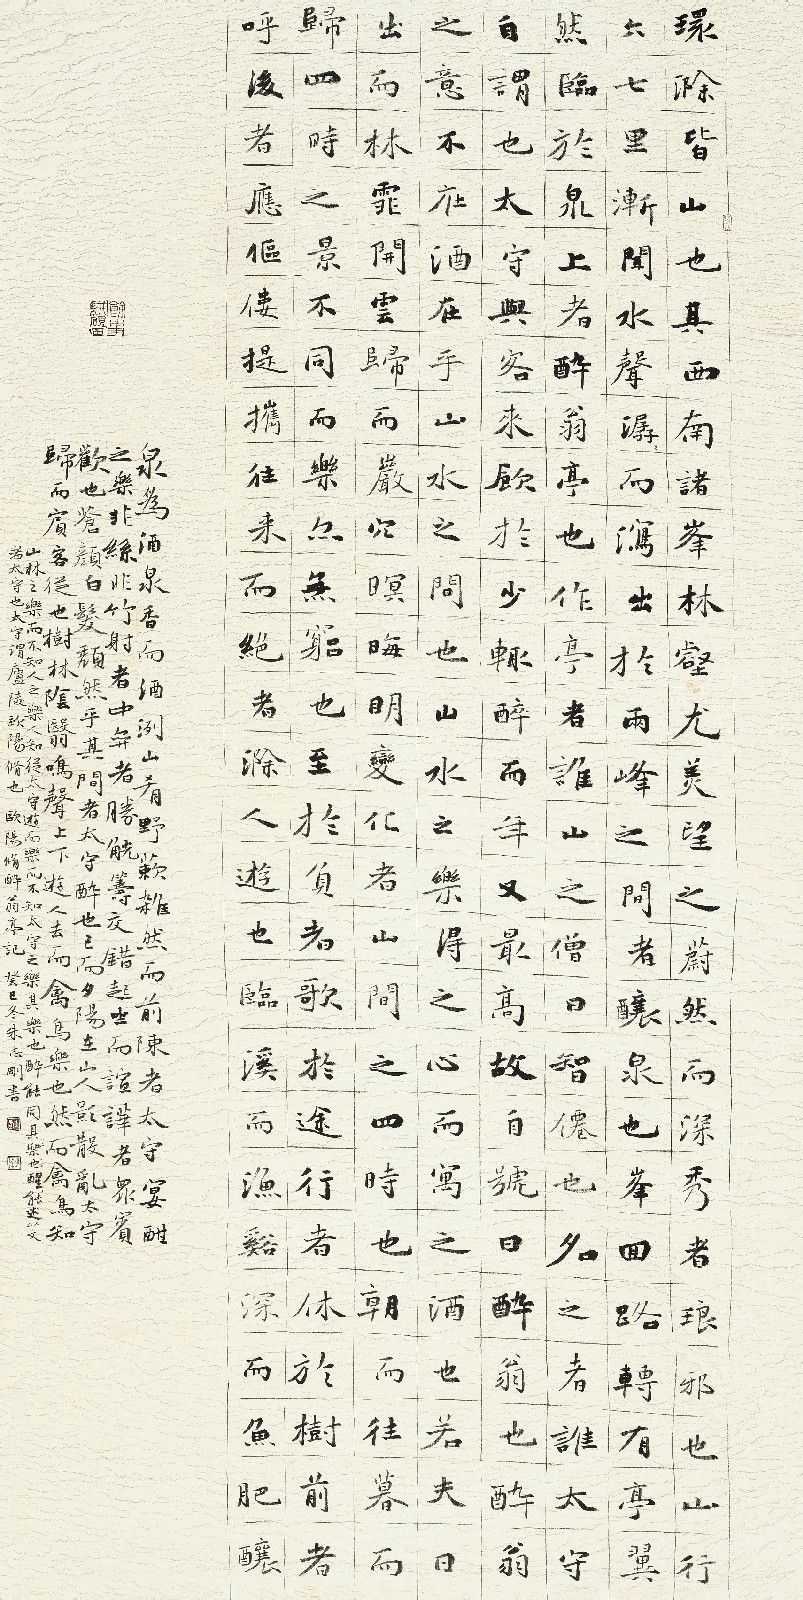 環滁皆山也其西南諸峯林壑尤美望之蔚然而深秀者琅邪也山行
六七里漸聞水聲潺々而瀉出於兩峰之間者釀泉也峯回路轉有亭翼
然臨於泉上者醉翁亭也作亭者誰山之僧曰智僊也名之者誰太守
自謂也太守與客來飲於少輒醉而年又最高故自號曰醉翁也醉翁
之意不在酒在乎山水之間也山水之樂得之心而寓之酒也若夫日
出而林霏開雲歸而巖穴暝晦明變化者山間之四時也朝而往暮而
歸四時之景不同而樂亦無窮也至於負者歌於途行者休於樹前者
呼後者應傴僂提攜往来而絕者滁人遊也臨溪而漁谿深而魚肥釀
泉為酒泉香而酒洌山肴野蔌雜然而前陳者太守宴酣
之樂非絲非竹射者中弈者勝觥籌交錯起坐而諠譁者眾賓
歡也蒼顏白髮頹然乎其間者太守醉也已而夕陽在山人影散亂太守
歸而賓客從也樹林陰翳鳴聲上下遊人去而禽鳥樂也然而禽鳥知
山林之樂而不知人之樂人知從太守遊而樂而不知太守之樂其樂也醉能同其樂也醒能述文
者太守也太守謂廬陵歐陽脩也 歐陽脩醉翁亭記 癸巳冬朱志剛書